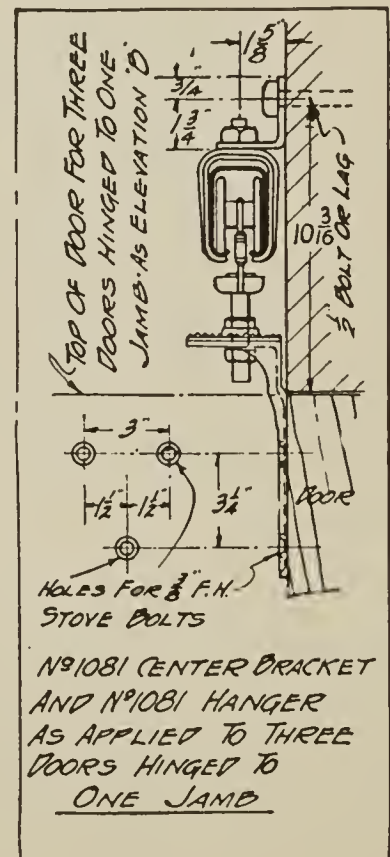 1 5/8"
3/4"
1 3/4"
TOP OF DOOR FOR THREE
DOORS HINGED TO ONE
JAMB. AS ELEVATION "B"
10 3/16
1/2 BOLT OR LAG
3"
1 1/2" 1 1/2"
3 1/4"
DOOR
HOLES FOR 3/8" F.H.
STOVE BOLTS
Nº1081 CENTER BRACKET
AND Nº1081 HANGER
AS APPLIED TO THREE
DOORS HINGED TO
ONE JAMB